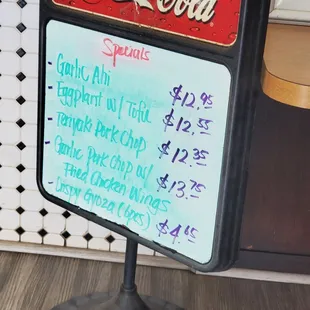 Coca-Cola
Specials
- Garlic Ahi $12.95
- Eggplant w/ Tofu $12.55
- Teriyaki Pork Chop $12.35
- Garlic Pork Chop w/
Fried Chicken Wings $13.75
- Crispy Gyoza (6pcs) $4.65